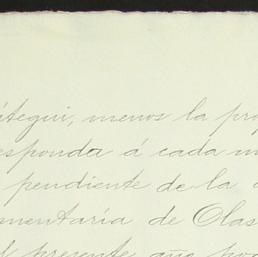 átegui, menos la pro
esponda á cada un
pendiente de la
mentaría de Olas
presente año pod